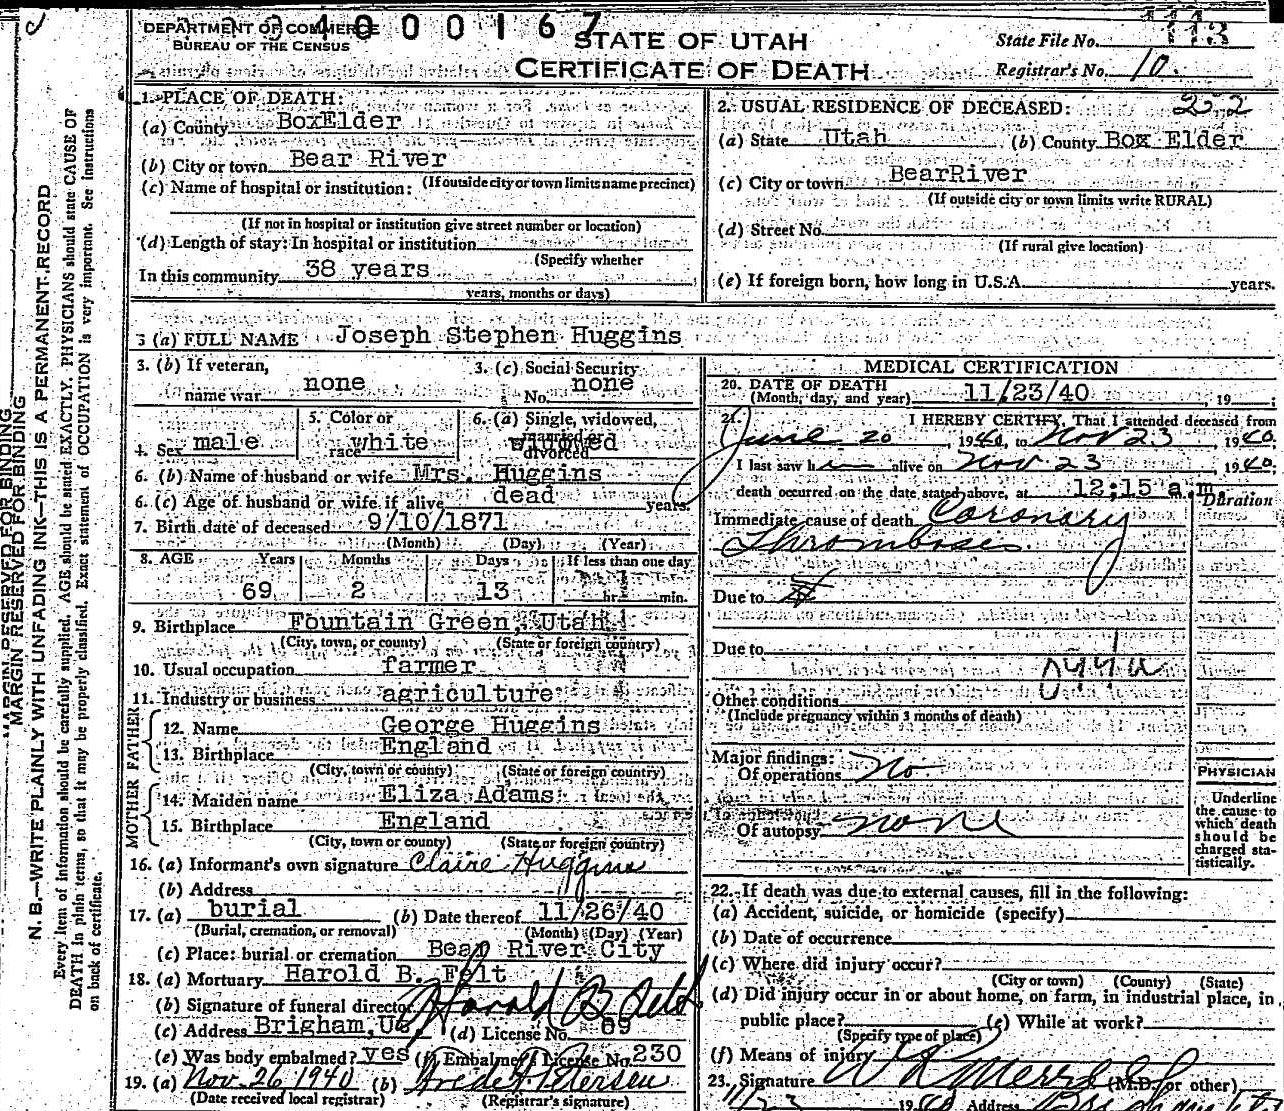 DEPARTMENT OF COMMERCE
BUREAU OF THE CENSUS
4 0 0 0 1 6 7
STATE OF UTAH
CERTIFICATE OF DEATH
State File No. 113
Registrar's No. 10.
1. PLACE OF DEATH:
(a) County BoxElder
(b) City or town Bear River
(If outside city or town limits name precinct)
(c) Name of hospital or institution:
(If not in hospital or institution give street number or location)
(d) Length of stay: In hospital or institution
(Specify whether
In this community 38 years
years, months or days)
2. USUAL RESIDENCE OF DECEASED: 222
(a) State Utah (b) County Box Elder
(c) City or town BearRiver
(If outside city or town limits write RURAL)
(d) Street No.
(If rural give location)
(e) If foreign born, how long in U.S.A. years.
3 (a) FULL NAME Joseph Stephen Huggins
3. (b) If veteran, name war none
3. (c) Social Security No. none
4. Sex male
5. Color or race white
6. (a) Single, widowed, married or divorced widowed
6. (b) Name of husband or wife Mrs. Huggins
6. (c) Age of husband or wife if alive dead years.
7. Birth date of deceased 9/10/1871
(Month) (Day) (Year)
8. AGE Years Months Days If less than one day
69 2 13 hr. min.
9. Birthplace Fountain Green, Utah
(City, town, or county) (State or foreign country)
10. Usual occupation farmer
11. Industry or business agriculture
FATHER
12. Name George Huggins
13. Birthplace England
(City, town or county) (State or foreign country)
MOTHER
14. Maiden name Eliza Adams
15. Birthplace England
(City, town or county) (State or foreign country)
16. (a) Informant's own signature Claire Huggins
(b) Address
17. (a) burial (b) Date thereof 11/26/40
(Burial, cremation, or removal) (Month) (Day) (Year)
(c) Place: burial or cremation Bear River City
18. (a) Mortuary Harold B. Felt
(b) Signature of funeral director Harold B Felt
(c) Address Brigham, Ut. (d) License No. 69
(e) Was body embalmed? yes (f) Embalmer's License No. 230
19. (a) Nov. 26, 1940 (b) Petersen
(Date received local registrar) (Registrar's signature)
MEDICAL CERTIFICATION
20. DATE OF DEATH
(Month, day, and year) 11/23/40, 19 ;
21. I HEREBY CERTIFY, That I attended deceased from
June 20, 1940, to Nov 23 1940.
I last saw h im alive on Nov 23, 1940.
death occurred on the date stated above, at 12:15 a.m.
Duration
Immediate cause of death Coronary
Thrombosis
Due to
Due to
094a
Other conditions
(Include pregnancy within 3 months of death)
Major findings:
Of operations No
Of autopsy none
PHYSICIAN
Underline
the cause to
which death
should be
charged sta-
tistically.
22. If death was due to external causes, fill in the following:
(a) Accident, suicide, or homicide (specify)
(b) Date of occurrence
(c) Where did injury occur?
(City or town) (County) (State)
(d) Did injury occur in or about home, on farm, in industrial place, in
public place? (e) While at work?
(Specify type of place)
(f) Means of injury
23. Signature (M.D. or other)
11/23 1940 Address
MARGIN RESERVED FOR BINDING
MARGIN RESERVED FOR BINDING
N. B.—WRITE PLAINLY WITH UNFADING INK—THIS IS A PERMANENT RECORD
Every item of information should be carefully supplied. AGE should be stated EXACTLY. PHYSICIANS should state CAUSE OF
DEATH in plain terms, so that it may be properly classified. Exact statement of OCCUPATION is very important. See Instructions
on back of certificate.